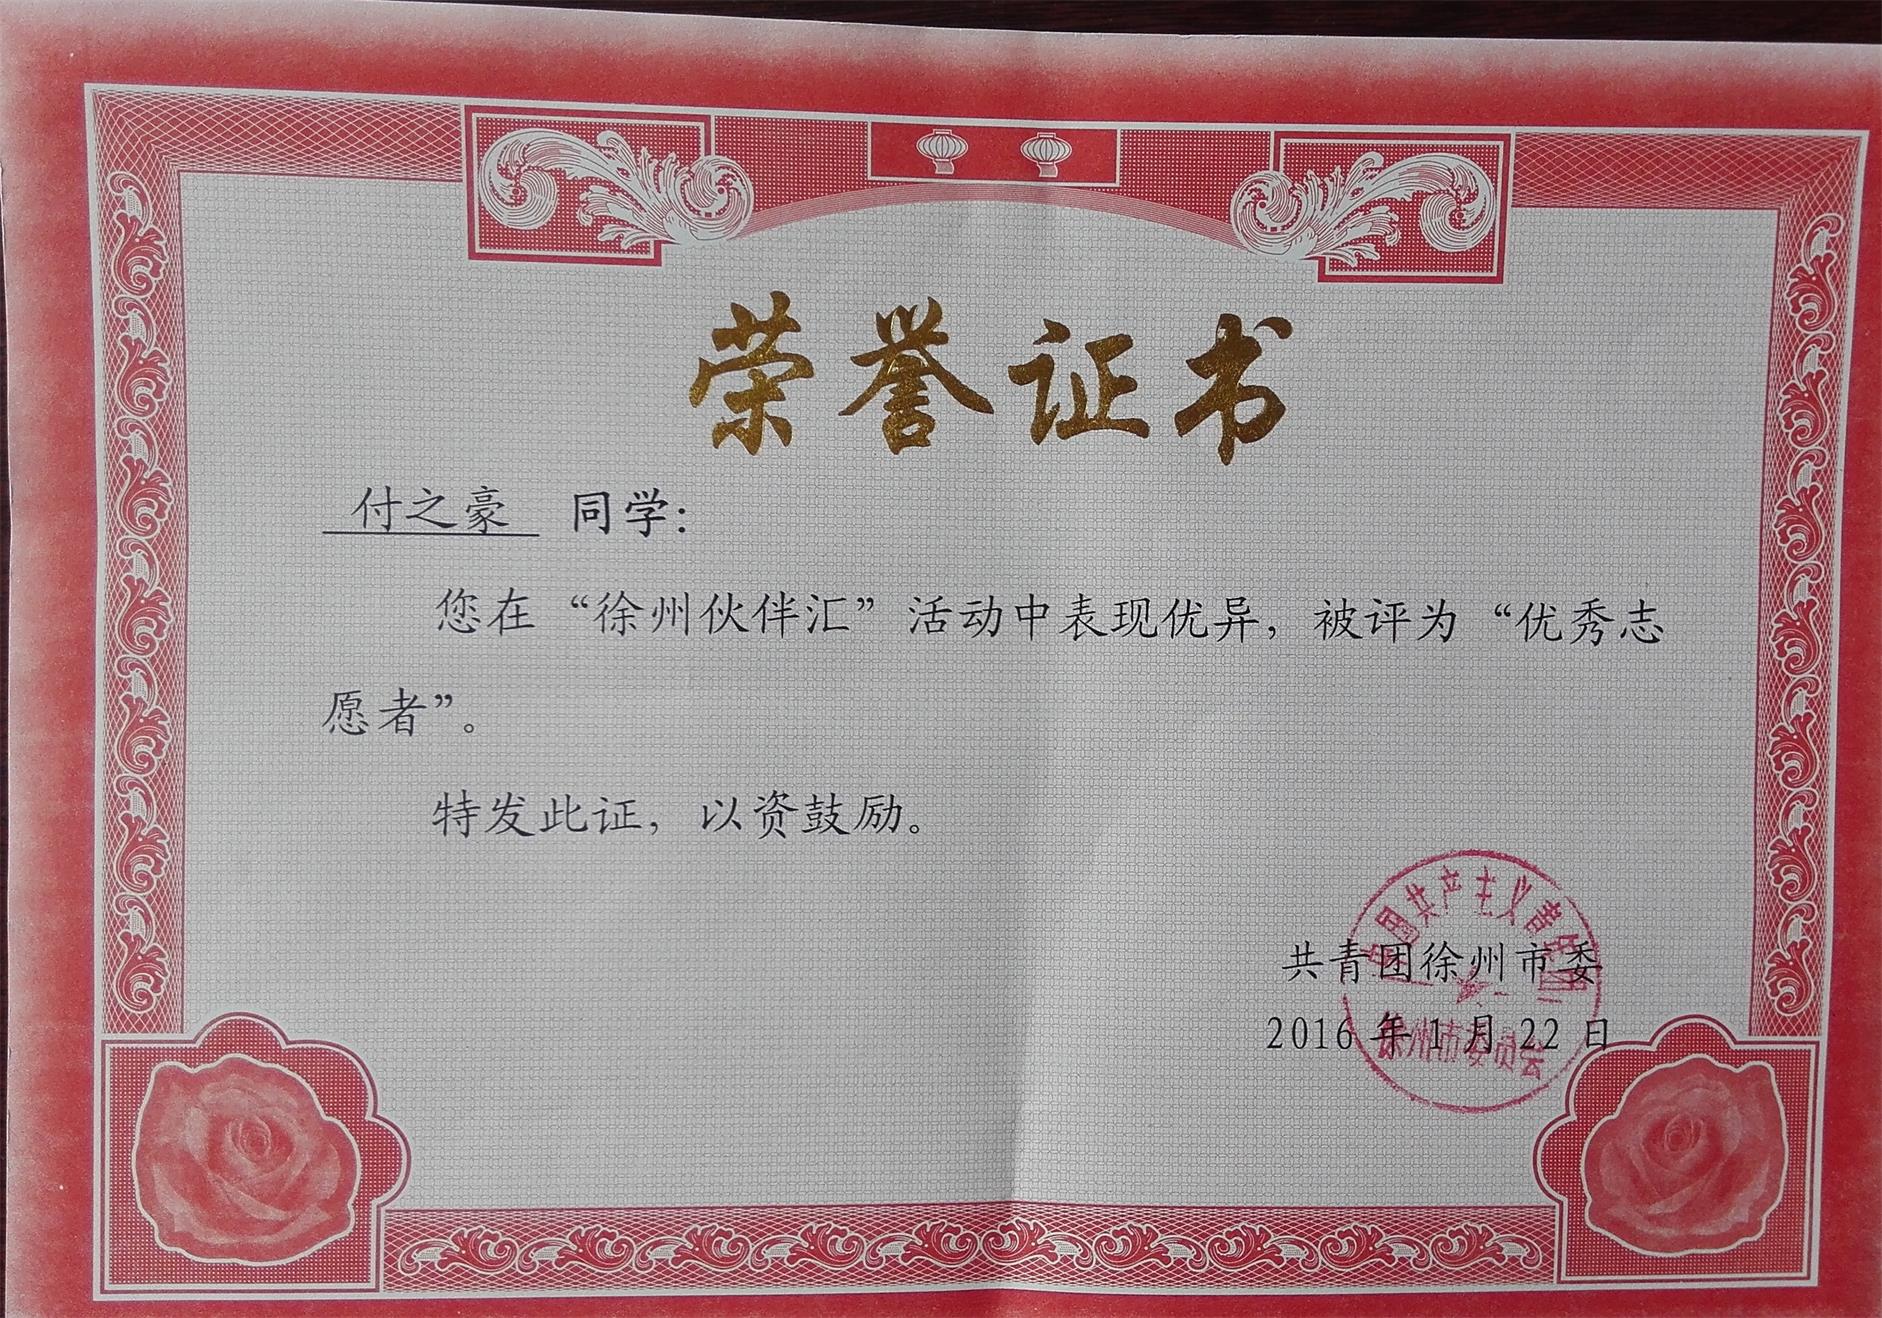 荣誉证书
付之豪 同学：
您在“徐州伙伴汇”活动中表现优异，被评为“优秀志
愿者”。
特发此证，以资鼓励。
中国共产主义青年团
共青团徐州市委
2016 年 1 月 22 日
徐州市委员会